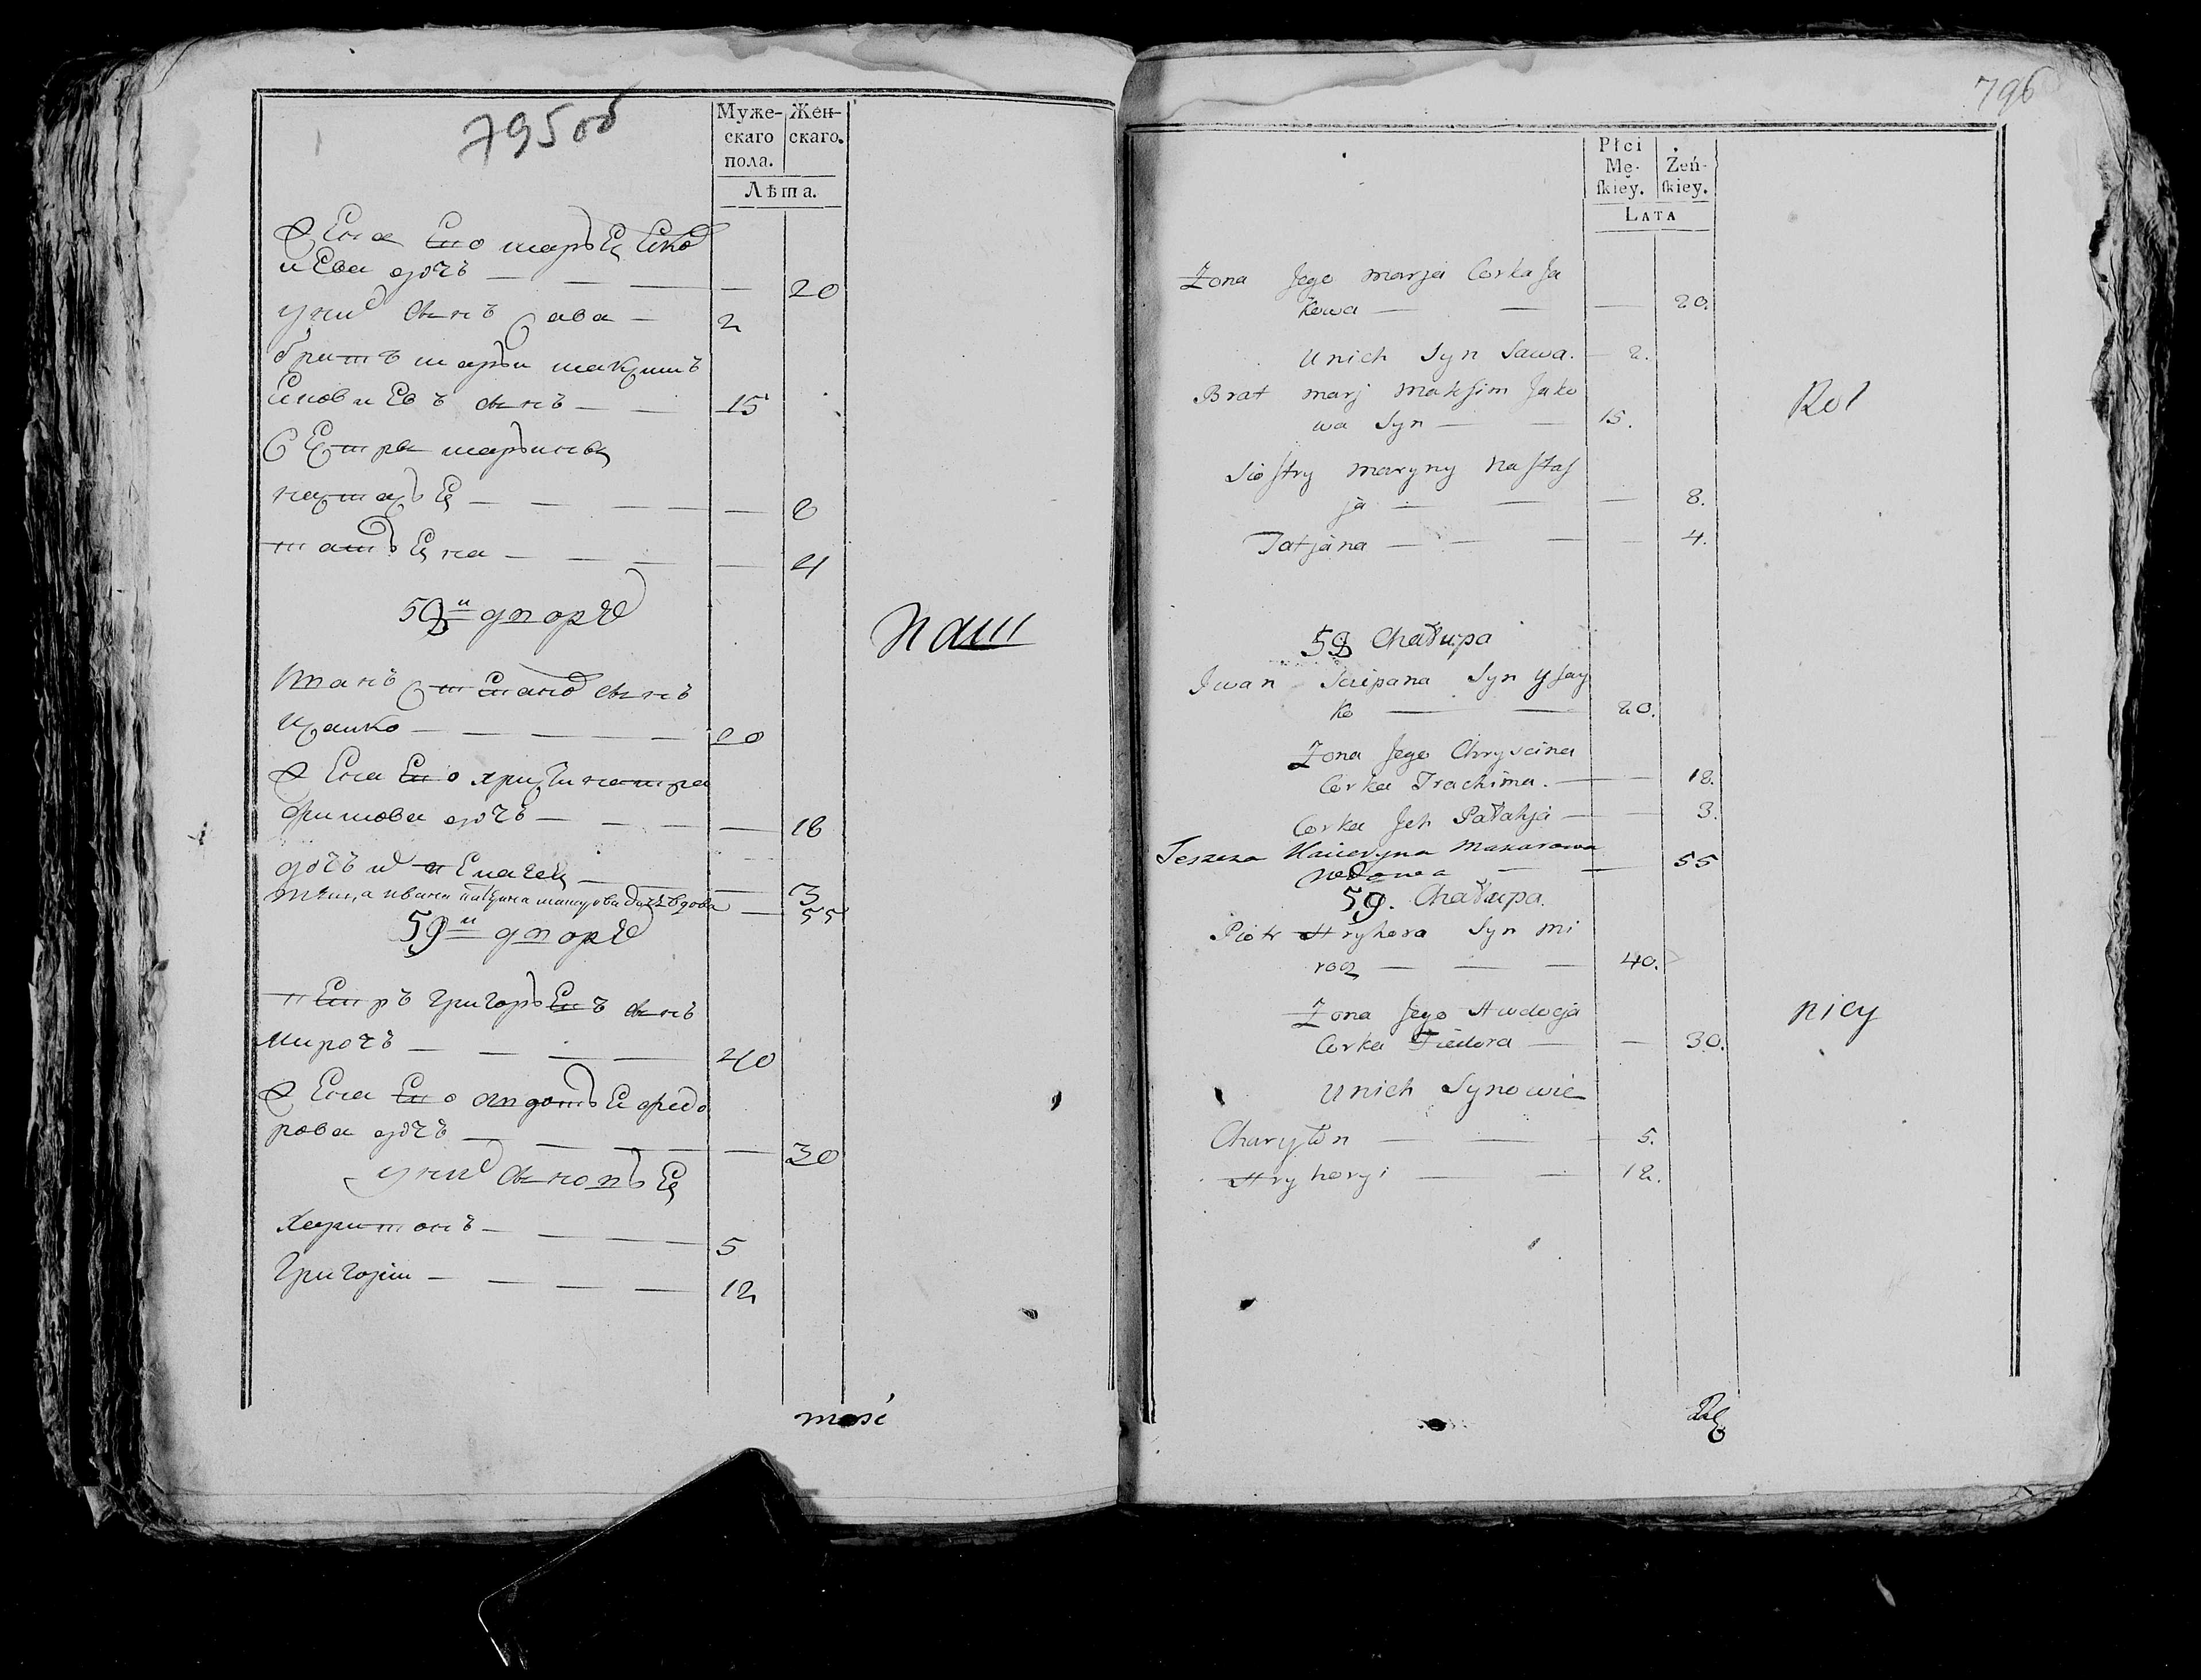 795 об
Муже-
скаго
пола.
Жен-
скаго.
Лѣта.
Жена Его марья Яков
лева дочь — — — — 20
у них сынъ Сава — 2
братъ марьи максимъ
Яковлевъ сынъ — — 15
Сестры марьины
настасья — — — — — 8
татьяна — — — — — 4
58й дворъ
Иванъ Степановъ сынъ
Исаико — — — — — 20
Жена Его христина тра
фимова дочь — — — — 18
дочь их Пелагея — — 3
теща ивана катерина макарова дочь вдова — 55
59й дворъ
Петръ григорьевъ сынъ
мирочъ — — — — 40
Жена Его авдотья федо
рова дочь — — — — 30
у них сыновья
харитонъ — — — — 5
григорiи — — — — — 12
паш
mość
796
Płci
Mę-
skiey.
Żeń-
skiey.
LATA
Zona Jego marja Corka Ja
kowa — — — 20.
Unich Syn Sawa. — 2.
Brat marj Maksim Jako
wa Syn — — 15.
Siostry maryny Nastas
ja — — — 8.
Tatjana — — — — 4.
58 Chałupa
Jwan Sciepana Syn Ysay
ko — — 20.
Zona Jego Chryscina
Corka Trachima. — — 18.
Corka Jch Pałahja — — 3.
Teszcza Kacieryna Makarowa
wdowa — — 55
59. Chałupa.
Piotr Hryhora Syn Mi
rocz — — — 40.
Zona Jego Awdocja
Corka Fiedora — — 30.
Unich Synowie
Charyton — — — 5.
Hryhoryi — — 12.
Rol
nicy